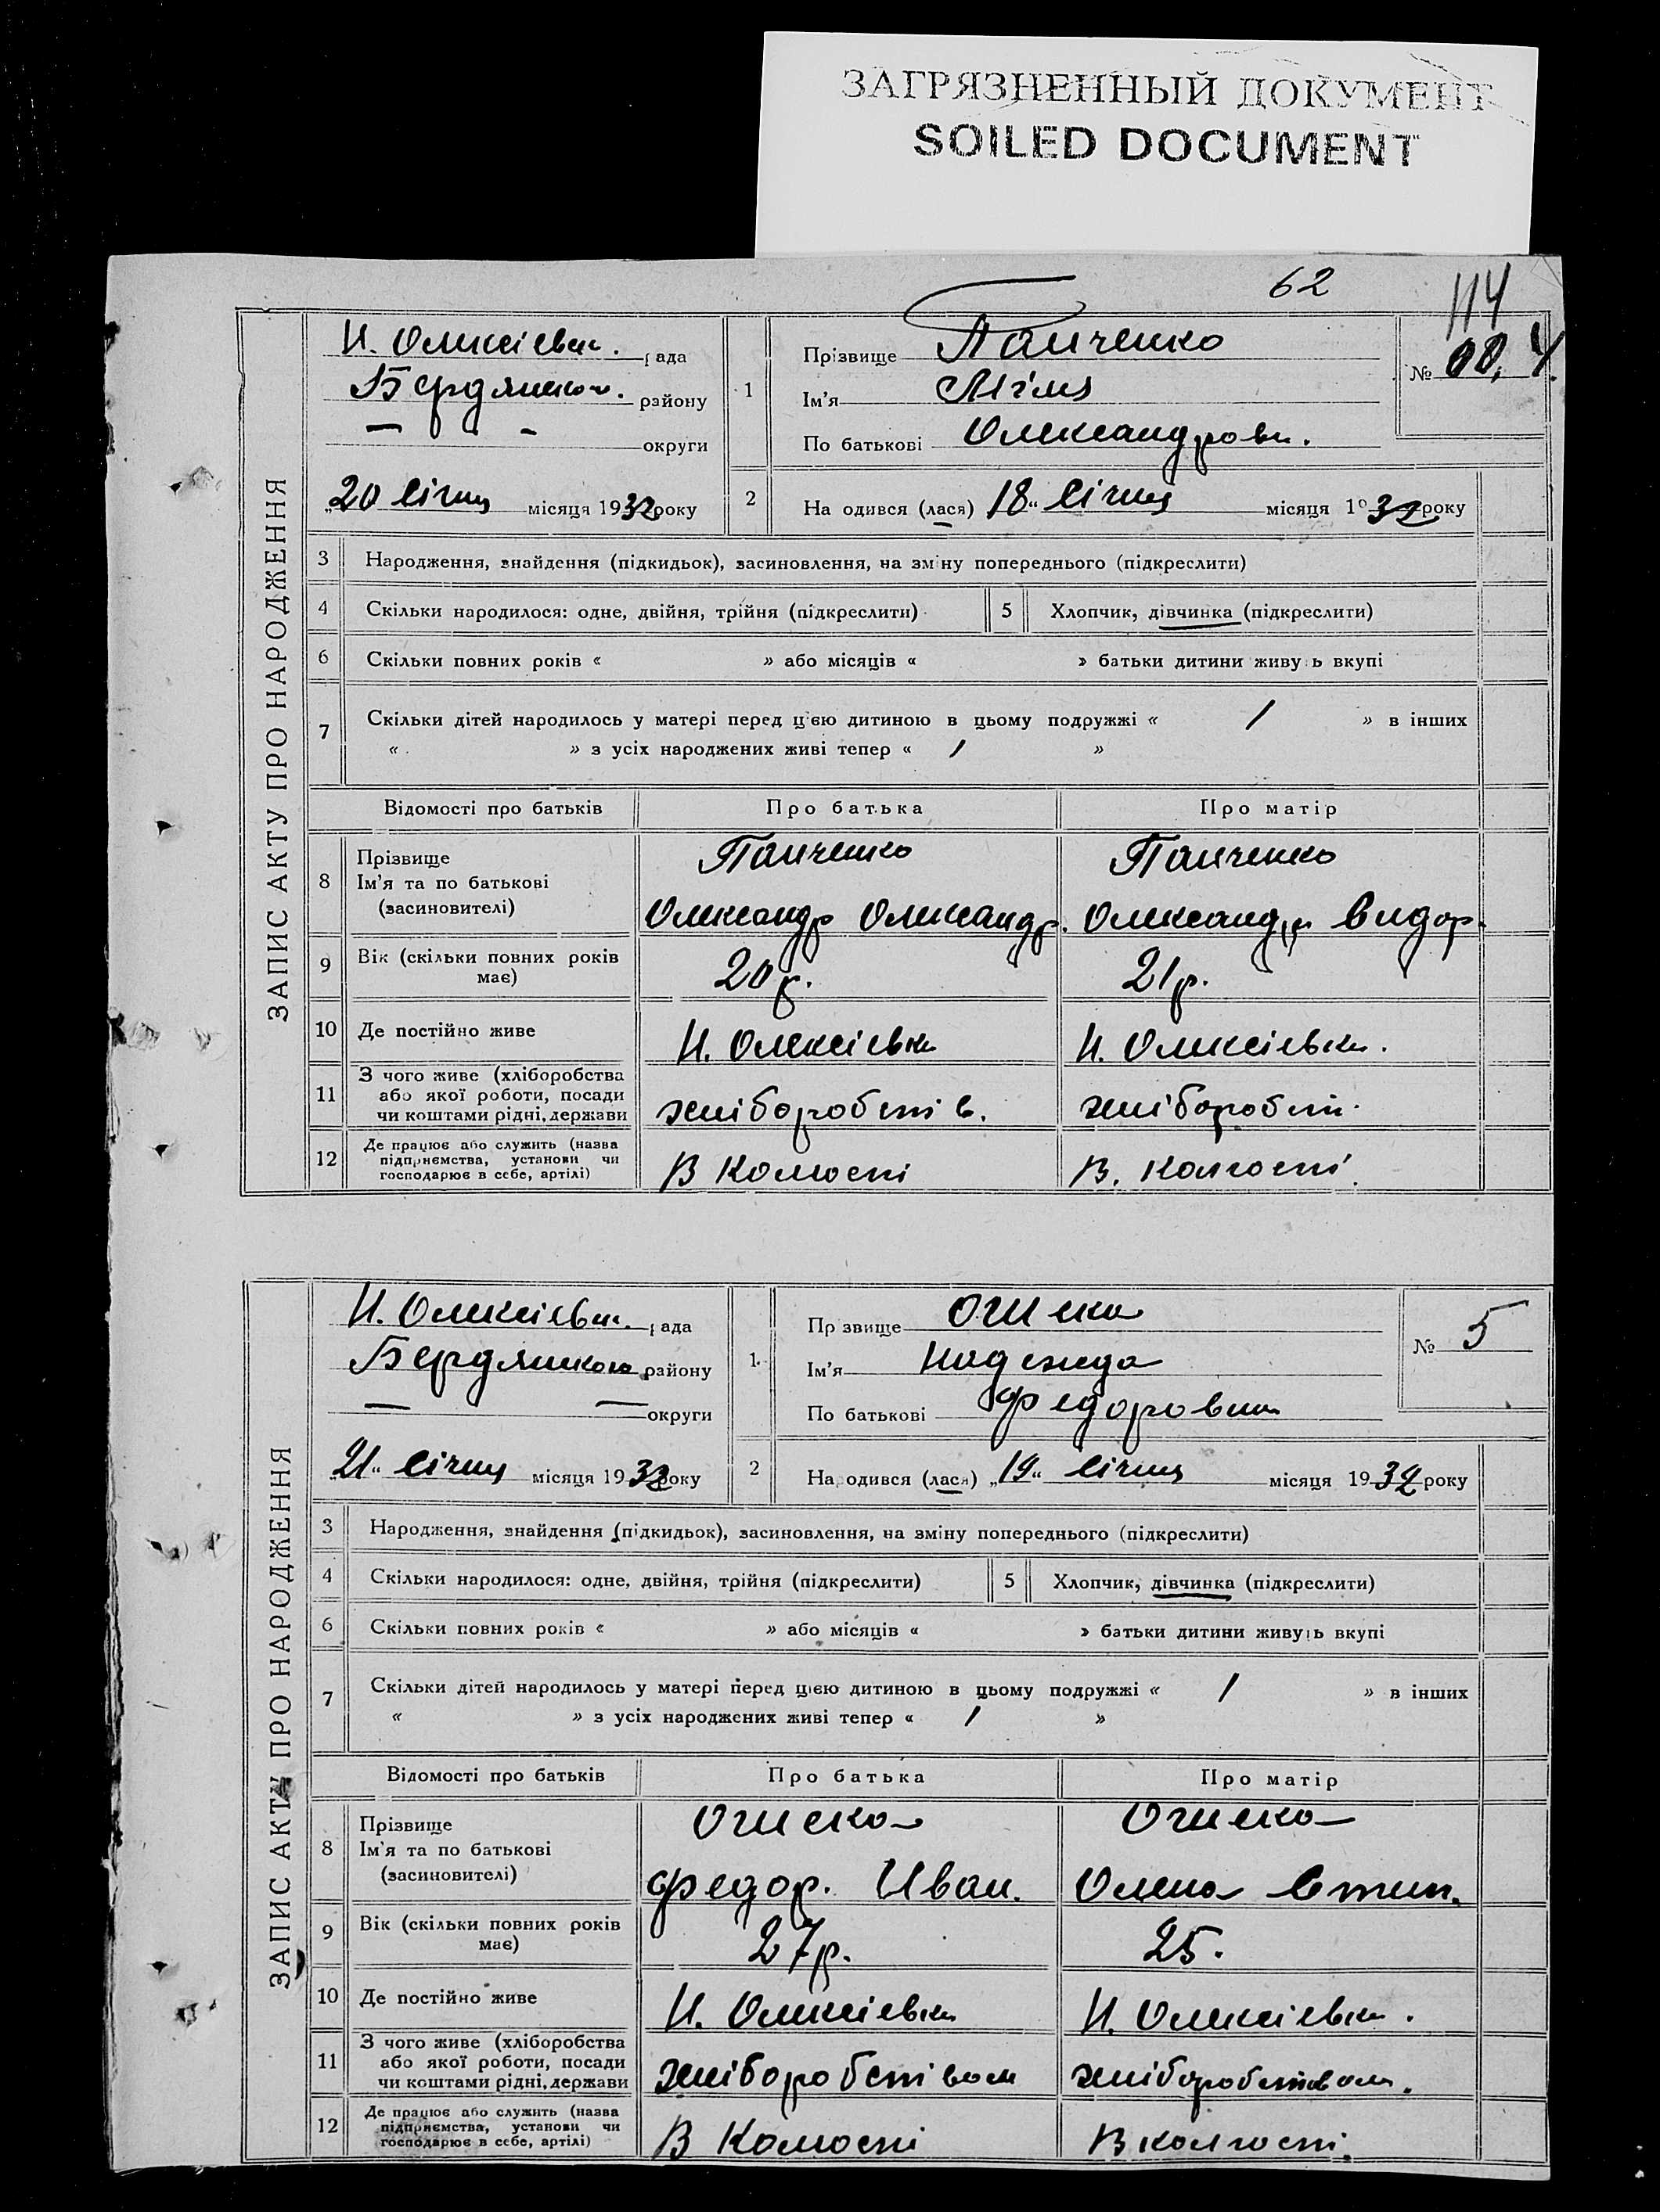 ЗАГРЯЗНЕННЫЙ ДОКУМЕНТ
SOILED DOCUMENT
62
114
ЗАПИС АКТУ ПРО НАРОДЖЕННЯ
Н. Олексієвск. рада
Бердянськ. району
— — округи
„20 Січня місяця 1932 року
1
Прізвище Панченко
Ім'я
По батькові Олександровн.
№ 4
2
На одився (лася) 18" Січня місяця 1932 року
3 Народження, знайдення (підкидьок), засиновлення, на зміну попереднього (підкреслити)
4 Скільки народилося: одне, двійня, трійня (підкреслити)
5 Хлопчик, дівчинка (підкреслити)
6 Скільки повних років « » або місяців « » батьки дитини живу ь вкупі
7 Скільки дітей народилось у матері перед цією дитиною в цьому подружжі « 1 » в інших
« » з усіх народжених живі тепер « 1 »
Відомості про батьків Про батька Про матір
8 Прізвище
Ім'я та по батькові
(засиновителі)
Панченко
Олександр Олександр.
Панченко
Олександр.
9 Вік (скільки повних років
має)
20 р. 21 р.
10 Де постійно живе Н. Олексієвка Н. Олексієвка.
11 З чого живе (хліборобства
або якої роботи, посади
чи коштами рідні, держави
хліборобств. хліборобств.
12 Де працює або служить (назва
підприємства, установи чи
господарює в себе, артілі)
В Колгоспі В. Колгоспі.
ЗАПИС АКТУ ПРО НАРОДЖЕННЯ
Н. Олексієвск. рада
Бердянського району
— — округи
21" Січня місяця 1932 року
1.
Пр звище
Ім'я Надежда
По батькові Федоровна
№ 5
2
На одився (лася) „19" Січня місяця 1932 року
3 Народження, знайдення (підкидьок), засиновлення, на зміну попереднього (підкреслити)
4 Скільки народилося: одне, двійня, трійня (підкреслити)
5 Хлопчик, дівчинка (підкреслити)
6 Скільки повних років « » або місяців « » батьки дитини живуть вкупі
7 Скільки дітей народилось у матері перед цією дитиною в цьому подружжі « 1 » в інших
« » з усіх народжених живі тепер « 1 »
Відомості про батьків Про батька Про матір
8 Прізвище
Ім'я та по батькові
(засиновителі)
Федор. Иван.
Олена
9 Вік (скільки повних років
має)
27 р. 25.
10 Де постійно живе Н. Олексієвка Н. Олексієвка.
11 З чого живе (хліборобства
або якої роботи, посади
чи коштами рідні, держави
хліборобством хліборобством.
12 Де працює або служить (назва
підприємства, установи чи
господарює в себе, артілі)
В Колгоспі В колгоспі.